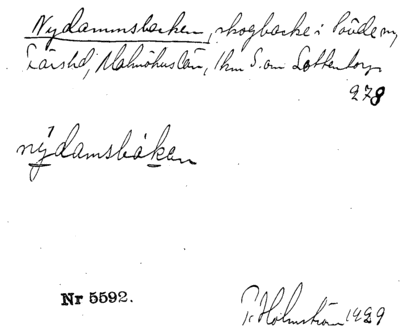 Nydammsbacken, skogbacke i Södde sn,
Färs hd, Malmöhus län, 1 km S. om Lottenborg
278
nýdamsbakan
Nr 5592.
Holmström 1929